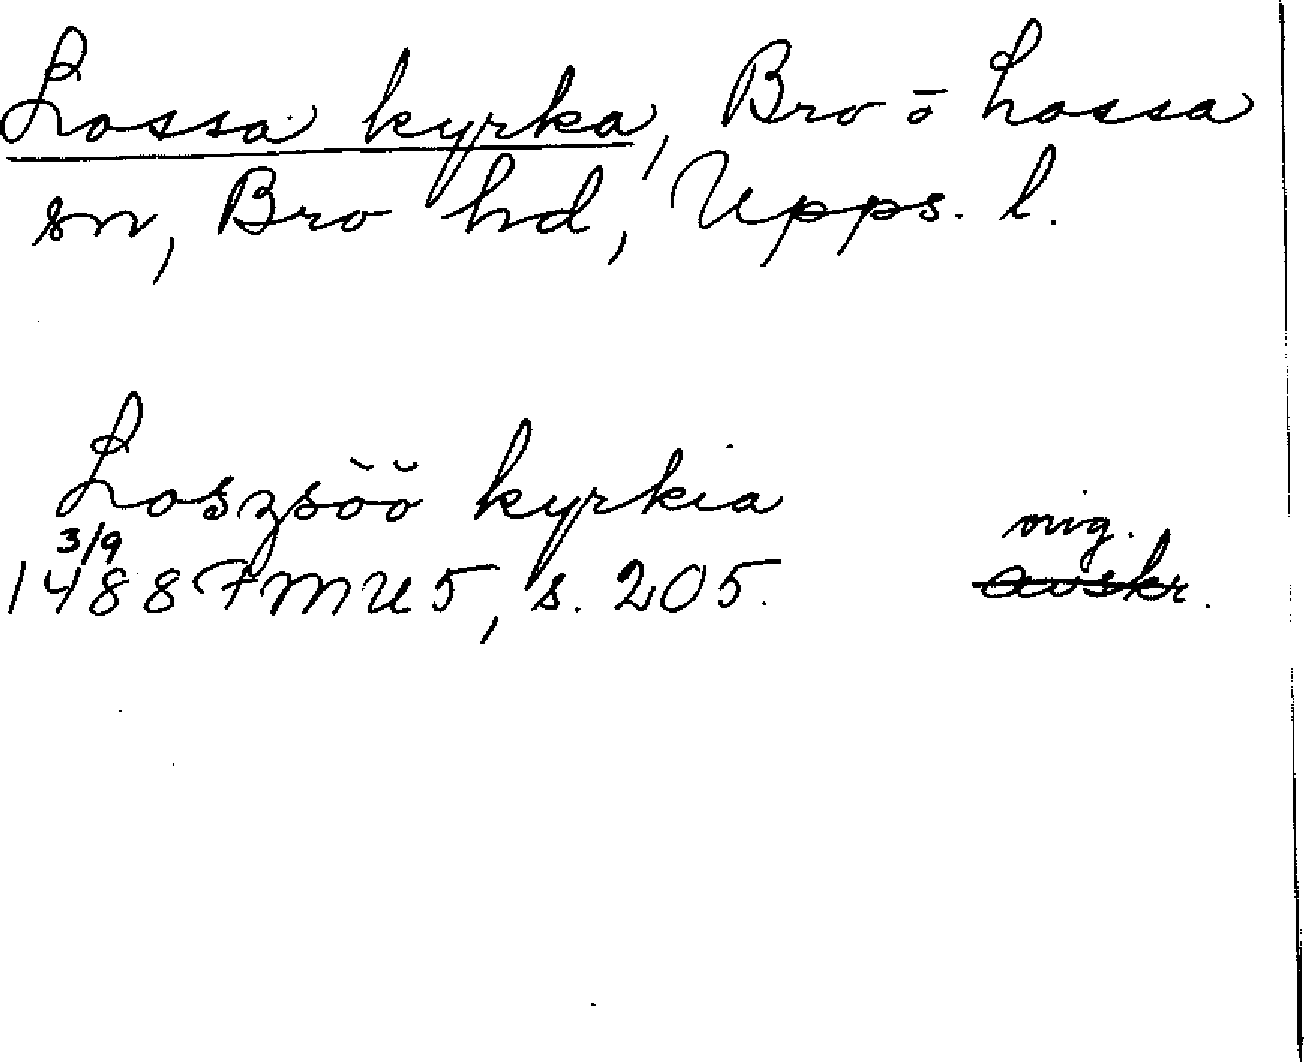 Lossa kyrka, Bro o Lossa
sn, Bro hd, Upps. l.
Loszsöö kyrkia
orig.
3/9
1488 FMU 5, s. 205. avskr.